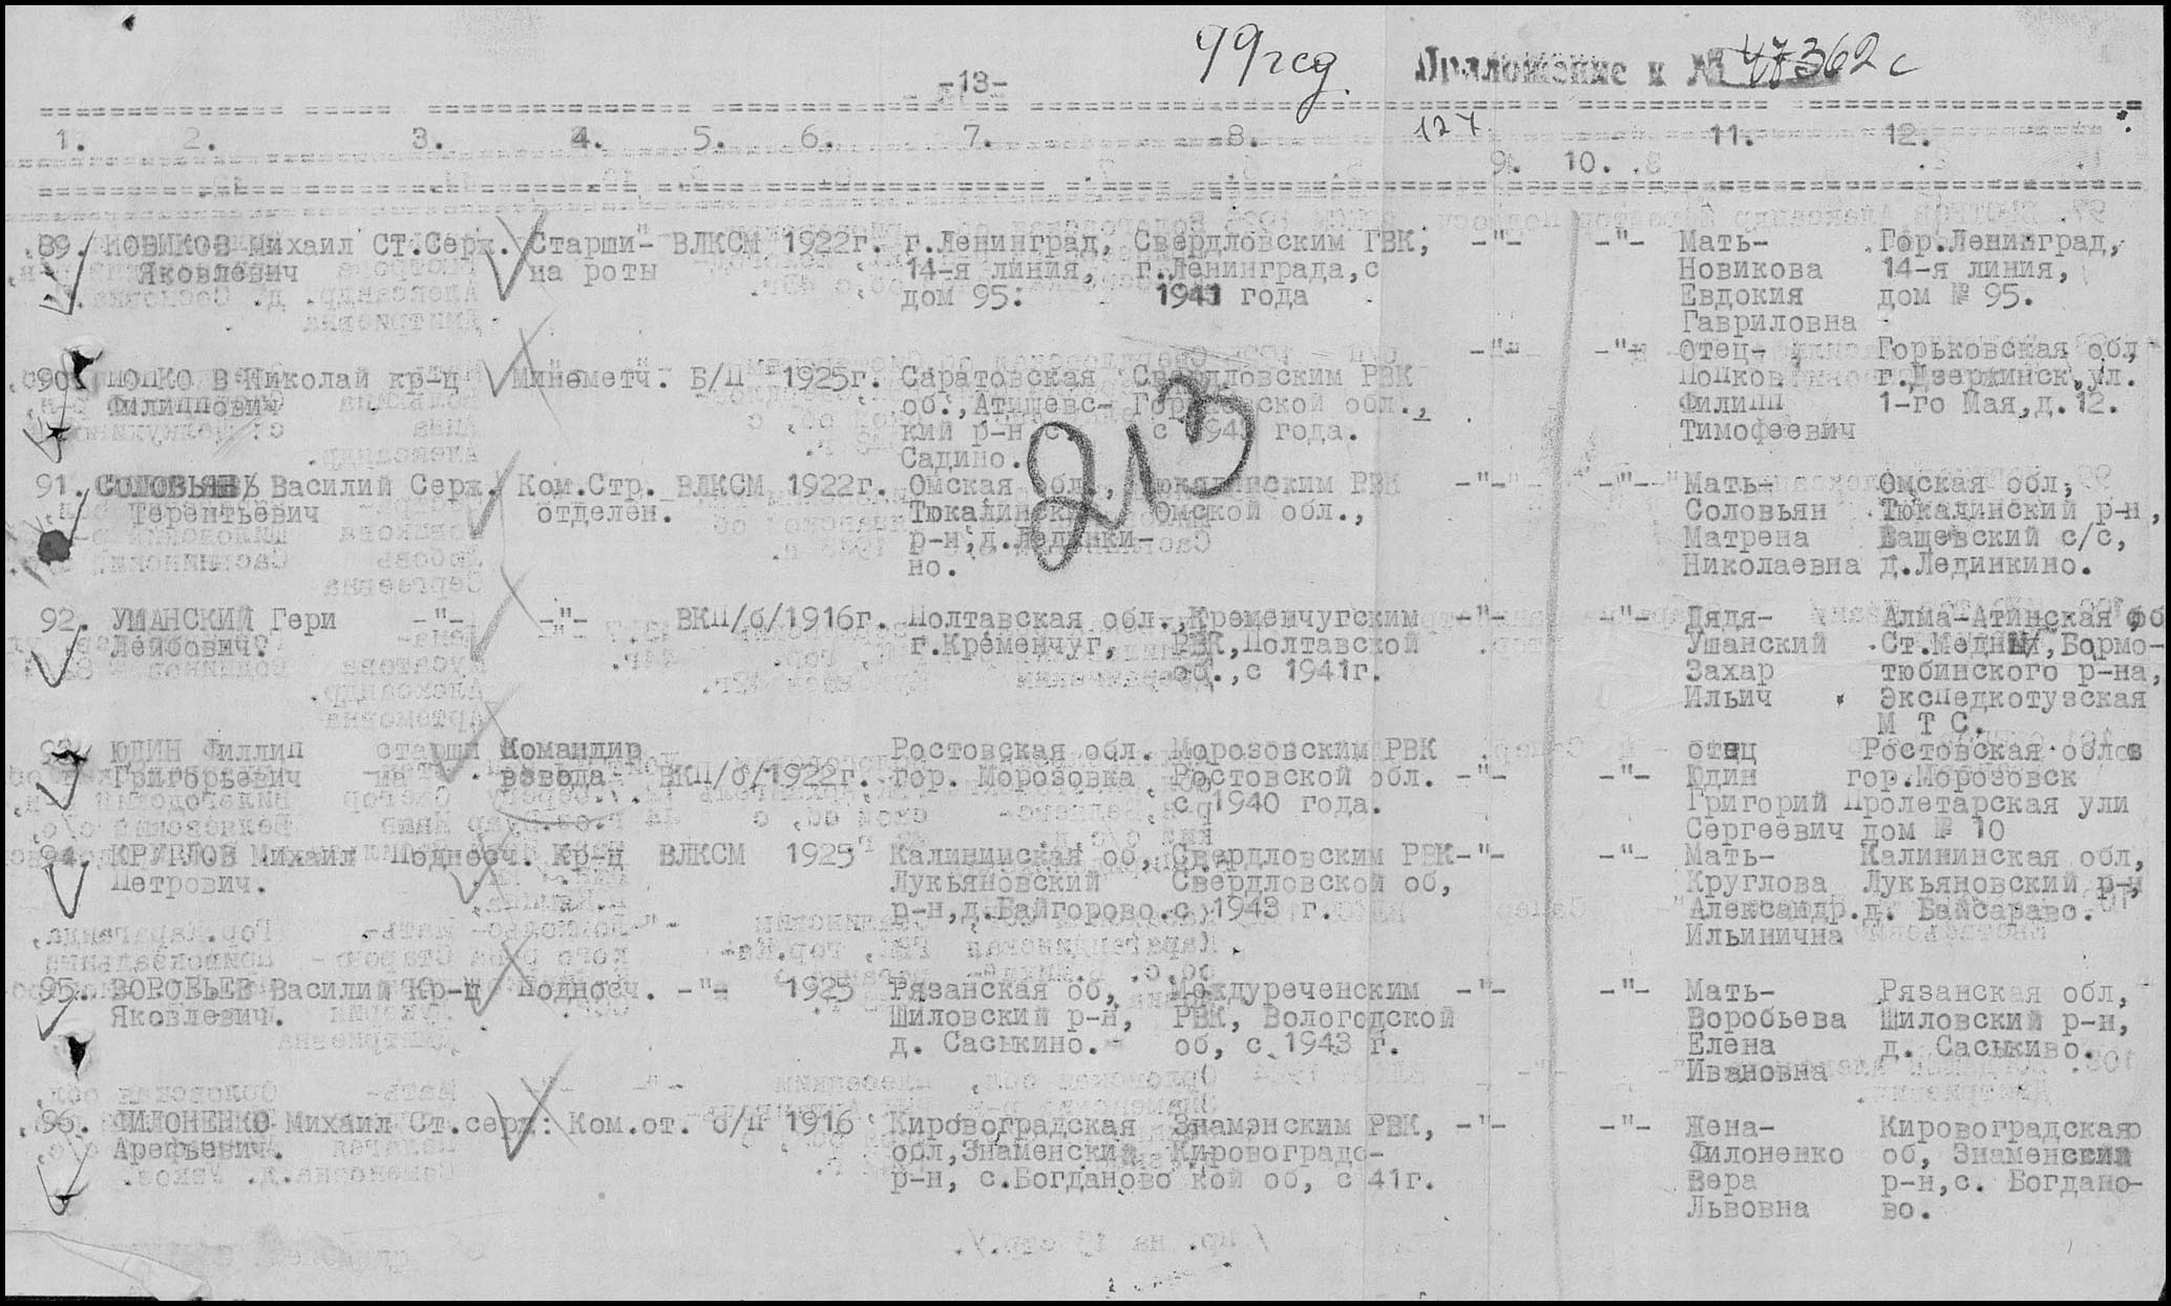 99гсд
Приложение к № 47362с
-13-
1. 2. 3. 4. 5. 6. 7. 8. 127 11. 12.
9. 10.
89. НОВИКОВ Михаил Ст.Серж. Старши- ВЛКСМ 1922г. г.Ленинград, Свердловским ГВК, -"- -"- Мать- Гор.Ленинград,
Яковлевич на роты 14-я линия, г.Ленинграда,с Новикова 14-я линия,
дом 95. 1941 года Евдокия дом № 95.
Гавриловна
-"- -"- Отец- Горьковская обл
90. ПОПКО В Николай кр-ц Минометч. Б/П 1925г. Саратовская Свердловским РВК Попков г.Дзержинск,ул.
Филиппович об.,Атищевс- Горьковской обл., Филипп 1-го Мая,д.12.
кий р-н с. с 1943 года. Тимофеевич
Садино.
213
91. СОЛОВЬЯН Василий Серж. Ком.Стр. ВЛКСМ 1922г. Омская обл., Тюкалинским РВК -"- -"- Мать- Омская обл,
Терентьевич отделен. Тюкалинский Омской обл., Соловьян Тюкалинский р-н,
р-н,д.Лединки- Матрена Ващевский с/с,
но. Николаевна д.Лединкино.
92. УШАНСКИЙ Гери -"- -"- ВКП/б/1916г. Полтавская обл.,Кременчугским -"- -"- Дядя- Алма-Атинская об
Лейбович. г.Кременчуг, РВК,Полтавской Ушанский Ст.Медный,Бормо-
об.,с 1941г. Захар тюбинского р-на,
Ильич Экспедкотузская
М Т С.
93. ЮДИН Филлип старши Командир Ростовская обл. Морозовским РВК отец Ростовская облов
Григорьевич на взвода ВКП/б/1922г. гор. Морозовка Ростовской обл. -"- -"- Юдин гор.Морозовск
с 1940 года. Григорий Пролетарская ули
Сергеевич дом № 10
94. КРУГЛОВ Михаил Подносч. Кр-ц ВЛКСМ 1925 Калининская об, Свердловским РВК-"- -"- Мать- Калининская обл,
Петрович. Лукьяновский Свердловской об, Круглова Лукьяновский р-н,
р-н,д.Байгорово.с 1943 г. Александр.д. Байсараво.
Ильинична
95. ВОРОБЬЕВ Василий Кр-ц Подносч. -"- 1925 Рязанская об, Междуреченским -"- -"- Мать- Рязанская обл,
Яковлевич. Шиловский р-н, РВК, Вологодской Воробьева Шиловский р-н,
д. Саськино. об, с 1943 г. Елена д. Саськиво.
Ивановна
96. ФИЛОНЕНКО Михаил Ст.серж. Ком.от. б/п 1916 Кировоградская Знаменским РВК, -"- -"- Жена- Кировоградская
Арефьевич. обл,Знаменский Кировоградс- Филоненко об, Знаменский
р-н, с.Богданово кой об, с 41г. Вера р-н,с. Богдано-
Львовна во.